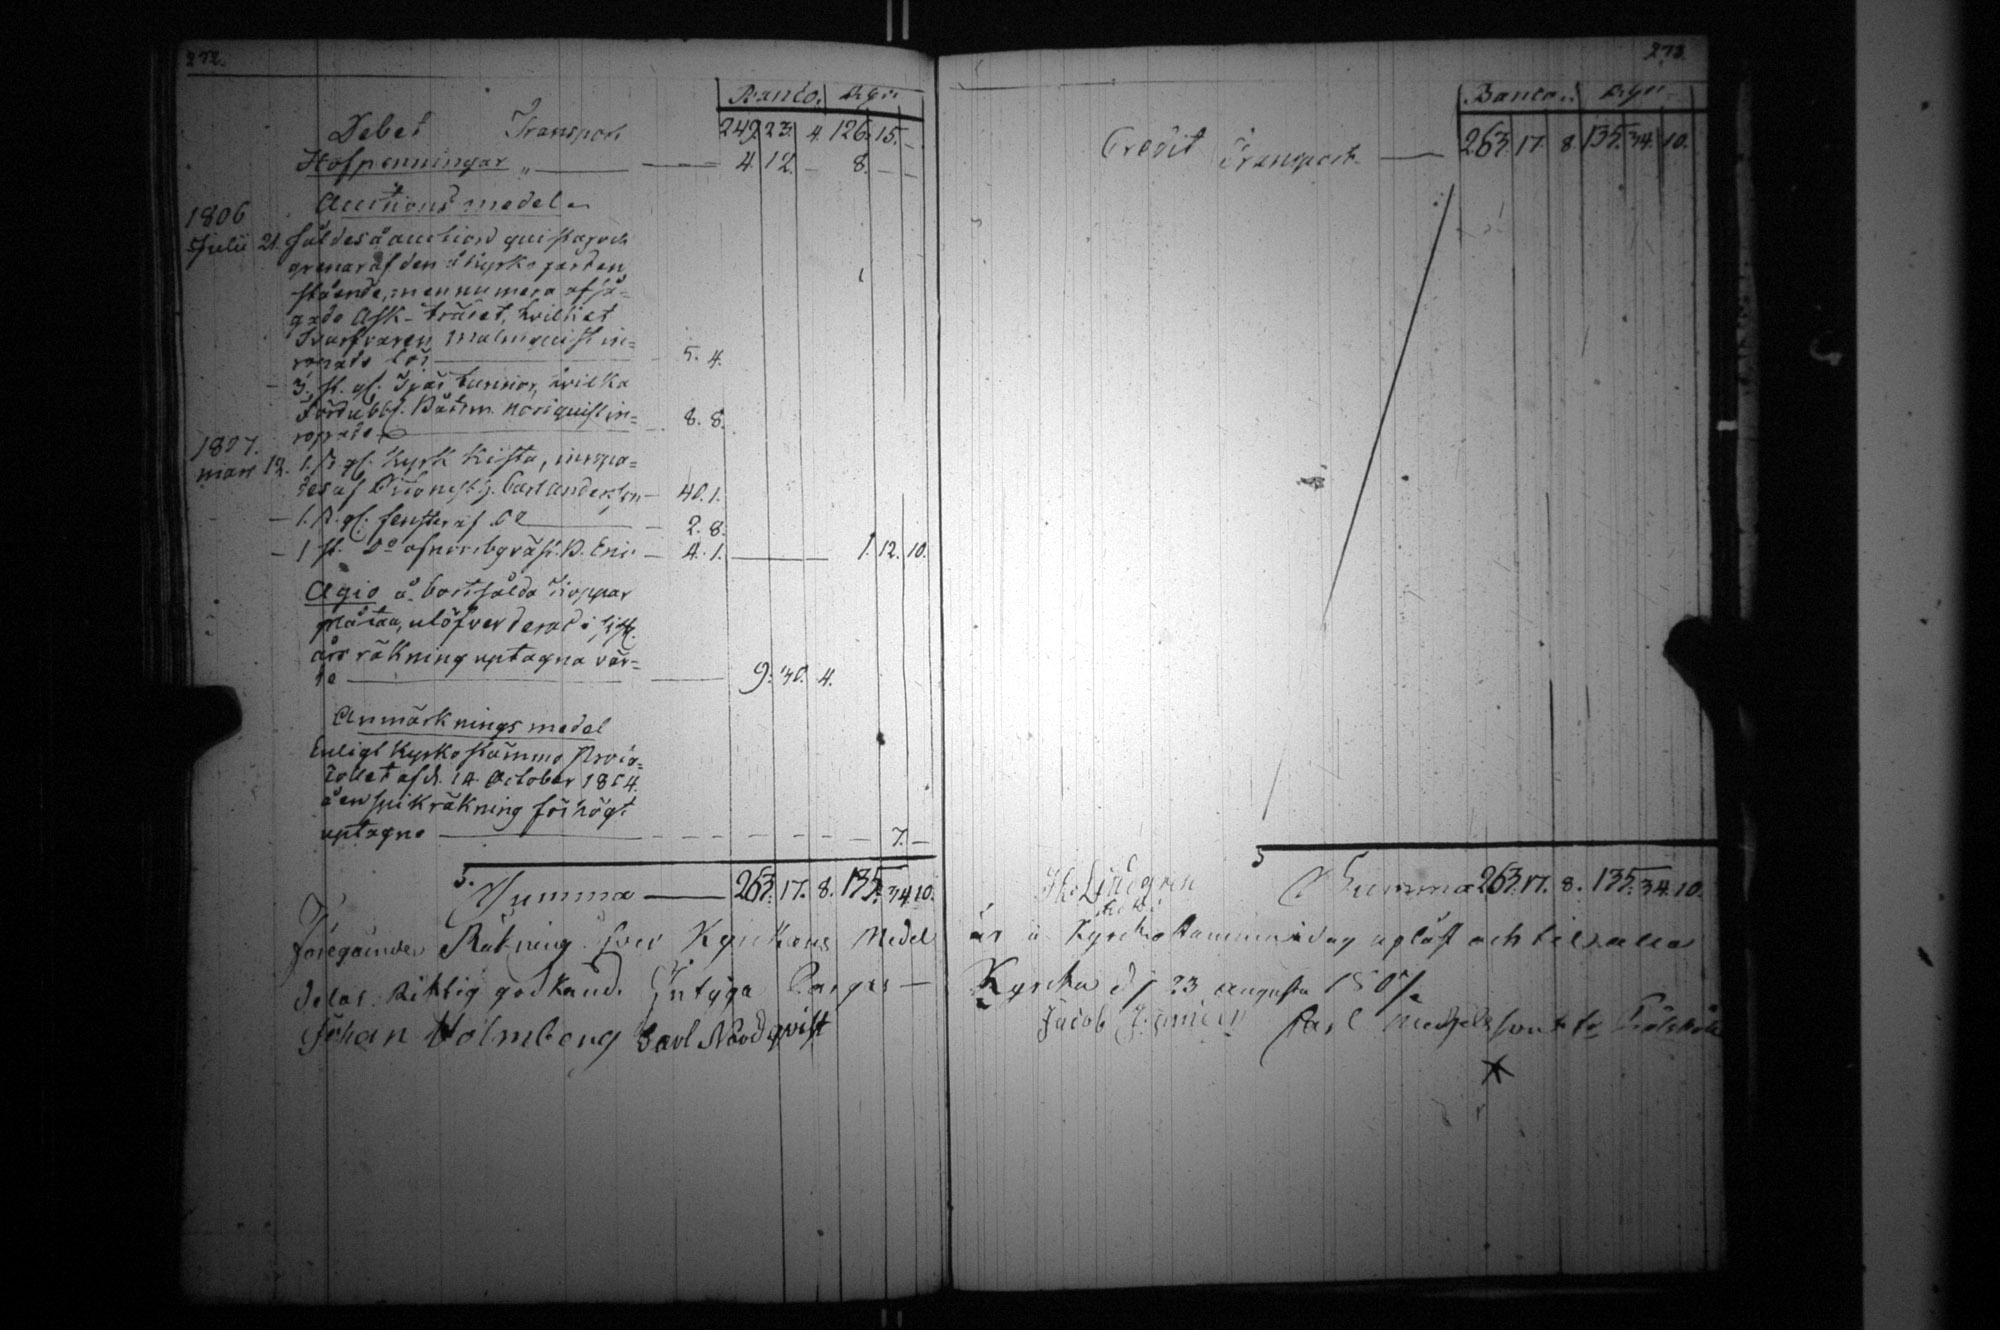 272.
Banco. Rgs.
Debet Transport 249. 23. 4. 126. 15. –
Hofpenningar „ 4. 12. – 8. – –
Auctions medel
1806
Julii 21. såldes å auction quistar och
grenar af den å Kyrkogården
stående, men nu mera afså=
gade Ask-trädet, hvilket
Malmquist in=
ropade för 5. 4.
– 3. st. gl. Tjär tunnor, hvilka
Båtsm. Norquist in=
ropade 8. 8.
1807.
Mars 12. 1. st. gl. Kyrk Kista, inropa=
des af Carl Anderson 40. 1.
– 1. st. gl. fenster af Do 2. 8.
– 1 st. Do af 4. 1. 1. 12. 10.
Agio å bortsålda Koppar
plåtar, utöfver deras i sist.
års räkning uptagna vär=
de 9. 30. 4.
Anmärknings medel
Enligt Kyrkostämmo Proto=
collet af d. 14 October 1804.
å en spikräkning för högt
uptagne 7. –
Summa 263. 17. 8. 135. 34. 10.
Föregående Räkning öfver Kyrkans Medel
delar Riktig godkänd. Intyga Pargas
Johan Holmberg Carl Nordqvist
273.
Banco. Rgs
Credit Transport 263. 17. 8. 135. 34. 10.
Lindgren Summa 263. 17. 8. 135. 34. 10.
är å Kyrckostämma i dag upläst och til alla
Kyrcka d 23 Augusti 1807.
Jacob Carl